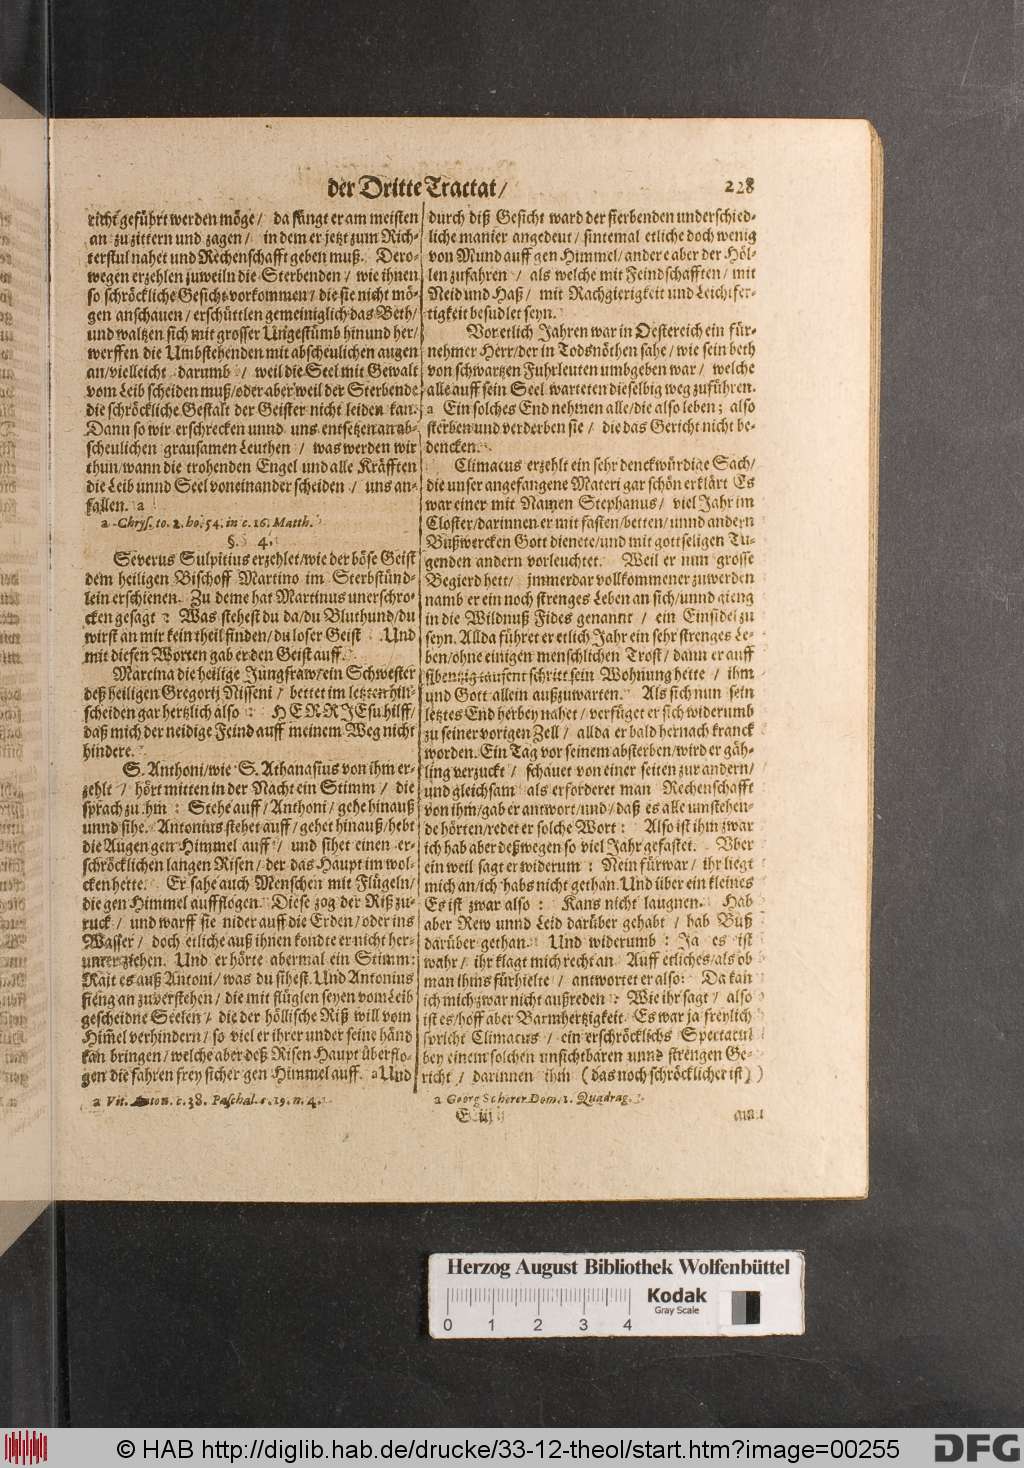 der Dritte Tractat/
228
richt geführt werden möge/ da fängt er am meisten
an zu zittern und zagen/ in dem er jetzt zum Rich-
terstul nahet und Rechenschafft geben muß. Dero-
wegen erzehlen zuweiln die Sterbenden/ wie ihnen
so schröckliche Gesicht vorkommen/ die sie nicht mö-
gen anschauen/ erschüttlen gemeiniglich das Beth/
und waltzen sich mit grosser Ungestümb hin und her/
werffen die Umbstehenden mit abscheulichen augen
an/ vielleicht darumb/ weil die Seel mit Gewalt
vom Leib scheiden muß/ oder aber weil der Sterbende
die schröckliche Gestalt der Geister nicht leiden kan.
Dann so wir erschrecken unnd uns entsetzen an ab-
scheulichen grausamen Leuthen/ was werden wir
thun/ wann die trohenden Engel und alle Kräfften
die Leib unnd Seel voneinander scheiden/ uns an-
fallen. a
a Chrys. to. 2. ho. 54. in c. 16. Matth.
§. 4.
Severus Sulpitius erzehlet/ wie der böse Geist
dem heiligen Bischoff Martino im Sterbstünd-
lein erschienen. Zu deme hat Martinus unerschro-
cken gesagt: Was stehest du da/ du Bluthund/ du
wirst an mir kein theil finden/ du loser Geist. Und
mit diesen Worten gab er den Geist auff.
Marcina die heilige Jungfraw/ ein Schwester
deß heiligen Gregorij Nisseni/ bettet im letzten hin-
scheiden gar hertzlich also: HERR JEsu hilff/
daß mich der neidige Feind auff meinem Weg nicht
hindere.
S. Anthoni/ wie S. Athanasius von ihm er-
zehlt/ hört mitten in der Nacht ein Stimm/ die
sprach zu ihm: Stehe auff/ Anthoni/ gehe hinauß
unnd sihe. Antonius stehet auff/ gehet hinauß/ hebt
die Augen gen Himmel auff/ und sihet einen er-
schröcklichen langen Risen/ der das Haupt im wol-
cken hette. Er sahe auch Menschen mit Flügeln/
die gen Himmel aufflogen. Diese zog der Riß zu-
ruck/ und warff sie nider auff die Erden/ oder ins
Wasser/ doch etliche auß ihnen kondte er nicht her-
unter ziehen. Und er hörte abermal ein Stimm:
Rait es auß Antoni/ was du sihest. Und Antonius
fieng an zu verstehen/ die mit flüglen seyen vom Leib
gescheidne Seelen/ die der höllische Riß will vom
Himel verhindern/ so viel er ihrer under seine händ
kan bringen/ welche aber deß Risen Haupt überflo-
gen die fahren frey sicher gen Himmel auff. a Und
a Vit. Anton. c. 38. Paschal. c. 19. n. 4.
durch diß Gesicht ward der sterbenden underschied-
liche manier angedeut/ sintemal etliche doch wenig
von Mund auff gen Himmel/ andere aber der Höl-
len zufahren/ als welche mit Feindschafften/ mit
Neid und Haß/ mit Rachgierigkeit und Leichtfer-
tigkeit besudlet seyn.
Vor etlich Jahren war in Oestereich ein für-
nehmer Herr/ der in Todsnöthen sahe/ wie sein beth
von schwartzen Fuhrleuten umbgeben war/ welche
alle auff sein Seel warteten dieselbig weg zuführen.
a Ein solches End nehmen alle/ die also leben; also
sterben und verderben sie/ die das Gericht nicht be-
dencken.
Climacus erzehlt ein sehr denckwürdige Sach/
die unser angefangene Materi gar schön erklärt Es
war einer mit Namen Stephanus/ viel Jahr im
Closter/ darinnen er mit fasten/ betten/ unnd andern
Bußwercken Gott dienete/ und mit gottseligen Tu-
genden andern vorleuchtet. Weil er nun grosse
Begierd hett/ jmmerdar vollkommener zu werden
namb er ein noch strenges Leben an sich/ unnd gieng
in die Wildnuß Fides genannt/ ein Einsidel zu
seyn. Allda führet er etlich Jahr ein sehr strenges Le-
ben/ ohne einigen menschlichen Trost/ dann er auff
sibentzig tausent schritt sein Wohnung hette/ ihm
und Gott allein außzuwarten. Als sich nun sein
letztes End herbey nahet/ verfüget er sich widerumb
zu seiner vorigen Zell/ allda er bald hernach kranck
worden. Ein Tag vor seinem absterben/ wird er gäh-
ling verzuckt/ schauet von einer seiten zur andern/
und gleichsam als erforderet man Rechenschafft
von ihm/ gab er antwort/ und/ daß es alle umstehen-
de hörten/ redet er solche Wort: Also ist ihm zwar
ich hab aber deßwegen so viel Jahr gefastet. Uber
ein weil sagt er widerum: Nein fürwar/ ihr liegt
mich an/ ich habs nicht gethan. Und über ein kleines
Es ist zwar also: Kans nicht laugnen. Hab
aber Rew unnd Leid darüber gehabt/ hab Buß
darüber gethan. Und widerumb: Ja es ist
wahr/ ihr klagt mich recht an Auff etliches/ als ob
man ihms fürhielte/ antwortet er also: Da kan
ich mich zwar nicht außreden: Wie ihr sagt/ also
ist es/ hoff aber Barmhertzigkeit. Es war ja freylich
spricht Climacus/ ein erschröcklichs Spectacul
bey einem solchen unsichtbaren unnd strengen Ge-
richt/ darinnen ihm (das noch schröcklicher ist)
a Georg Scherer Dom. 1. Quadrag.
E iij
Herzog August Bibliothek Wolfenbüttel
Kodak
Gray Scale
0 1 2 3 4
© HAB http://diglib.hab.de/drucke/33-12-theol/start.htm?image=00255
DFG